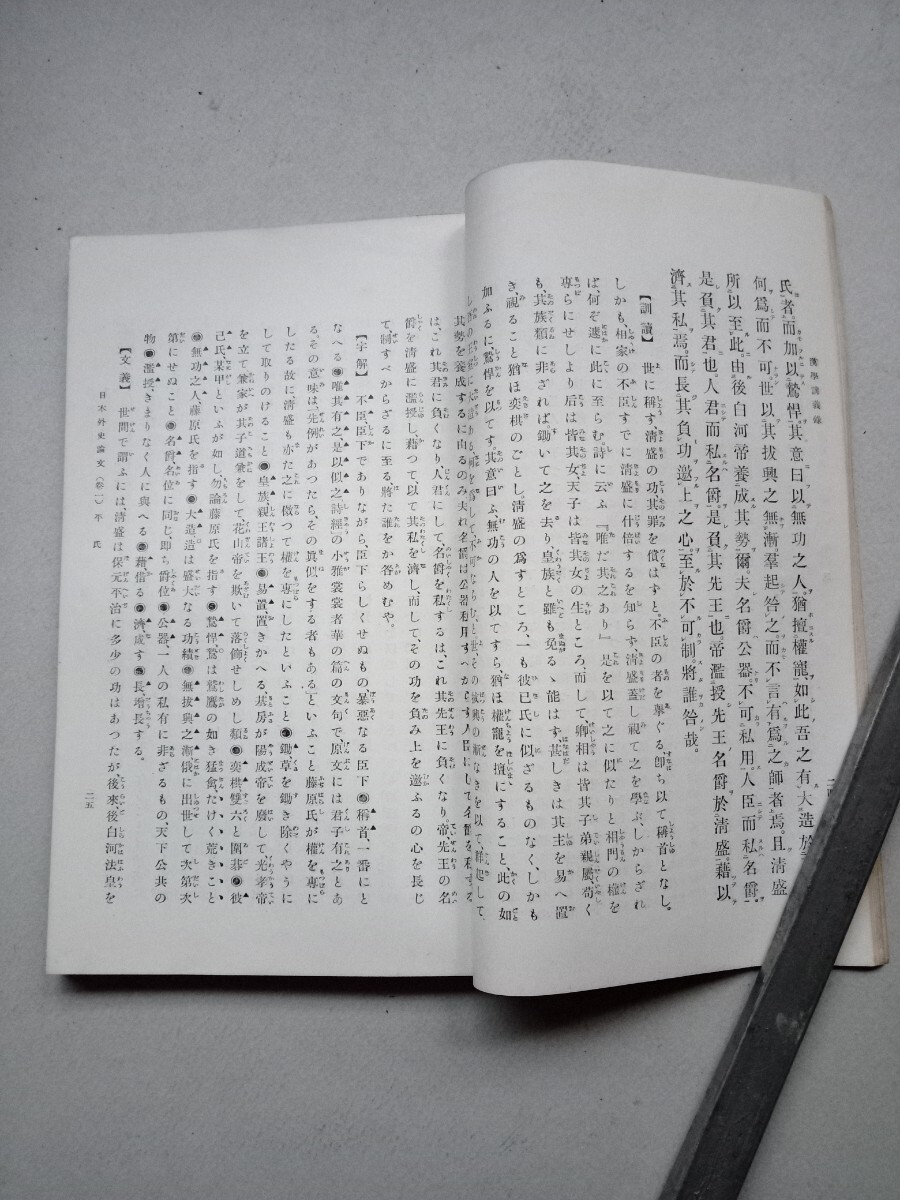 漢學講義錄
氏者而加以鷙悍其意曰以無功之人。猶擅權寵如此吾之有大造於
何爲而不可世以其拔興之無漸羣起咎之而不言有爲之師者焉。且淸盛
所以至此由後白河帝養成其勢爾夫名爵公器不可私用。人臣而私名爵。
是負其君也。人君而私名爵。是負其先王也。帝濫授先王名爵於淸盛。藉以
濟其私焉。而長其負功邀上之心。至於不可制。將誰咎哉。
【訓讀】 世に稱す淸盛の功其罪を償はずと、不臣の者を擧ぐる、卽ち以て稱首となし。
しかも、相家の不臣すでに淸盛に什倍するを知らず淸盛蓋し視て之を學ぶ、しからざれ
ば、何ぞ遽に此に至らむ。詩に云ふ『唯だ其之あり』是を以て之に似たりと相門の權を
專らにせしより后は皆其女、天子は皆其女の生むところ、而して、卿相は皆其子弟親屬苟く
も、其族類に非ざれば鋤いて之を去り皇族と雖も免るゝ能はず甚しきは其主を易へ置
き、視ること猶ほ奕棋のごとし。淸盛の爲すところ、一も彼已氏に似ざるものなく、しかも
加ふるに鷙悍を以てす其意に曰ふ、無功の人を以てすら、猶ほ權寵を擅にすること此の如
其勢を養成するに由るのみ夫れ名爵は公器
は、これ其君に負くなり人君にして、名爵を私するは、これ其先王に負くなり。帝、先王の名
爵を淸盛に濫授し、藉つて以て其私を濟し、而して、その功を負み上を邀ふるの心を長じ
て、制すべからざるに至る、將た誰をか咎めむや。
【字解】 不臣、臣下でありながら、臣下らしくせぬもの暴惡なる臣下●稱首、一番にと
なへる●唯其有之、是以似之、詩經の小雅裳裳者華の篇の文句で、原文には君子有之とあ
る、その意味は、先例があつたら、その眞似をする者もあるといふこと藤原氏が權を專に
したる故に、淸盛も亦た之に倣つて權を專にしたといふこと●鋤、草を鋤き除くやうに
して取りのけること●皇族、親王諸王●易置、置きかへる、基房が陽成帝を廢して光孝帝
を立て兼家が其子道兼をして花山帝を欺いて落飾せしめし類●奕棋、雙六と圍碁●彼
己氏、某甲といふがごとし勿論藤原氏を指す●鷙悍、鷙は鷲鷹の如き猛禽、たけく荒きこと
●無功之人、藤原氏を指す●大造、造は盛大なる功績●無拔興之漸、俄に出世して次第次
第にせぬこと●名爵、名位に同じ、卽ち爵位●公器、一人の私有に非ざるもの、天下公共の
物●濫授、きまりなく人に與へる●藉、借る●濟、成す●長、增長する。
【文義】 世間で謂ふには、淸盛は保元平治に多少の功はあつたが後來、後白河法皇を
日本外史論文(卷一)平 氏
二五